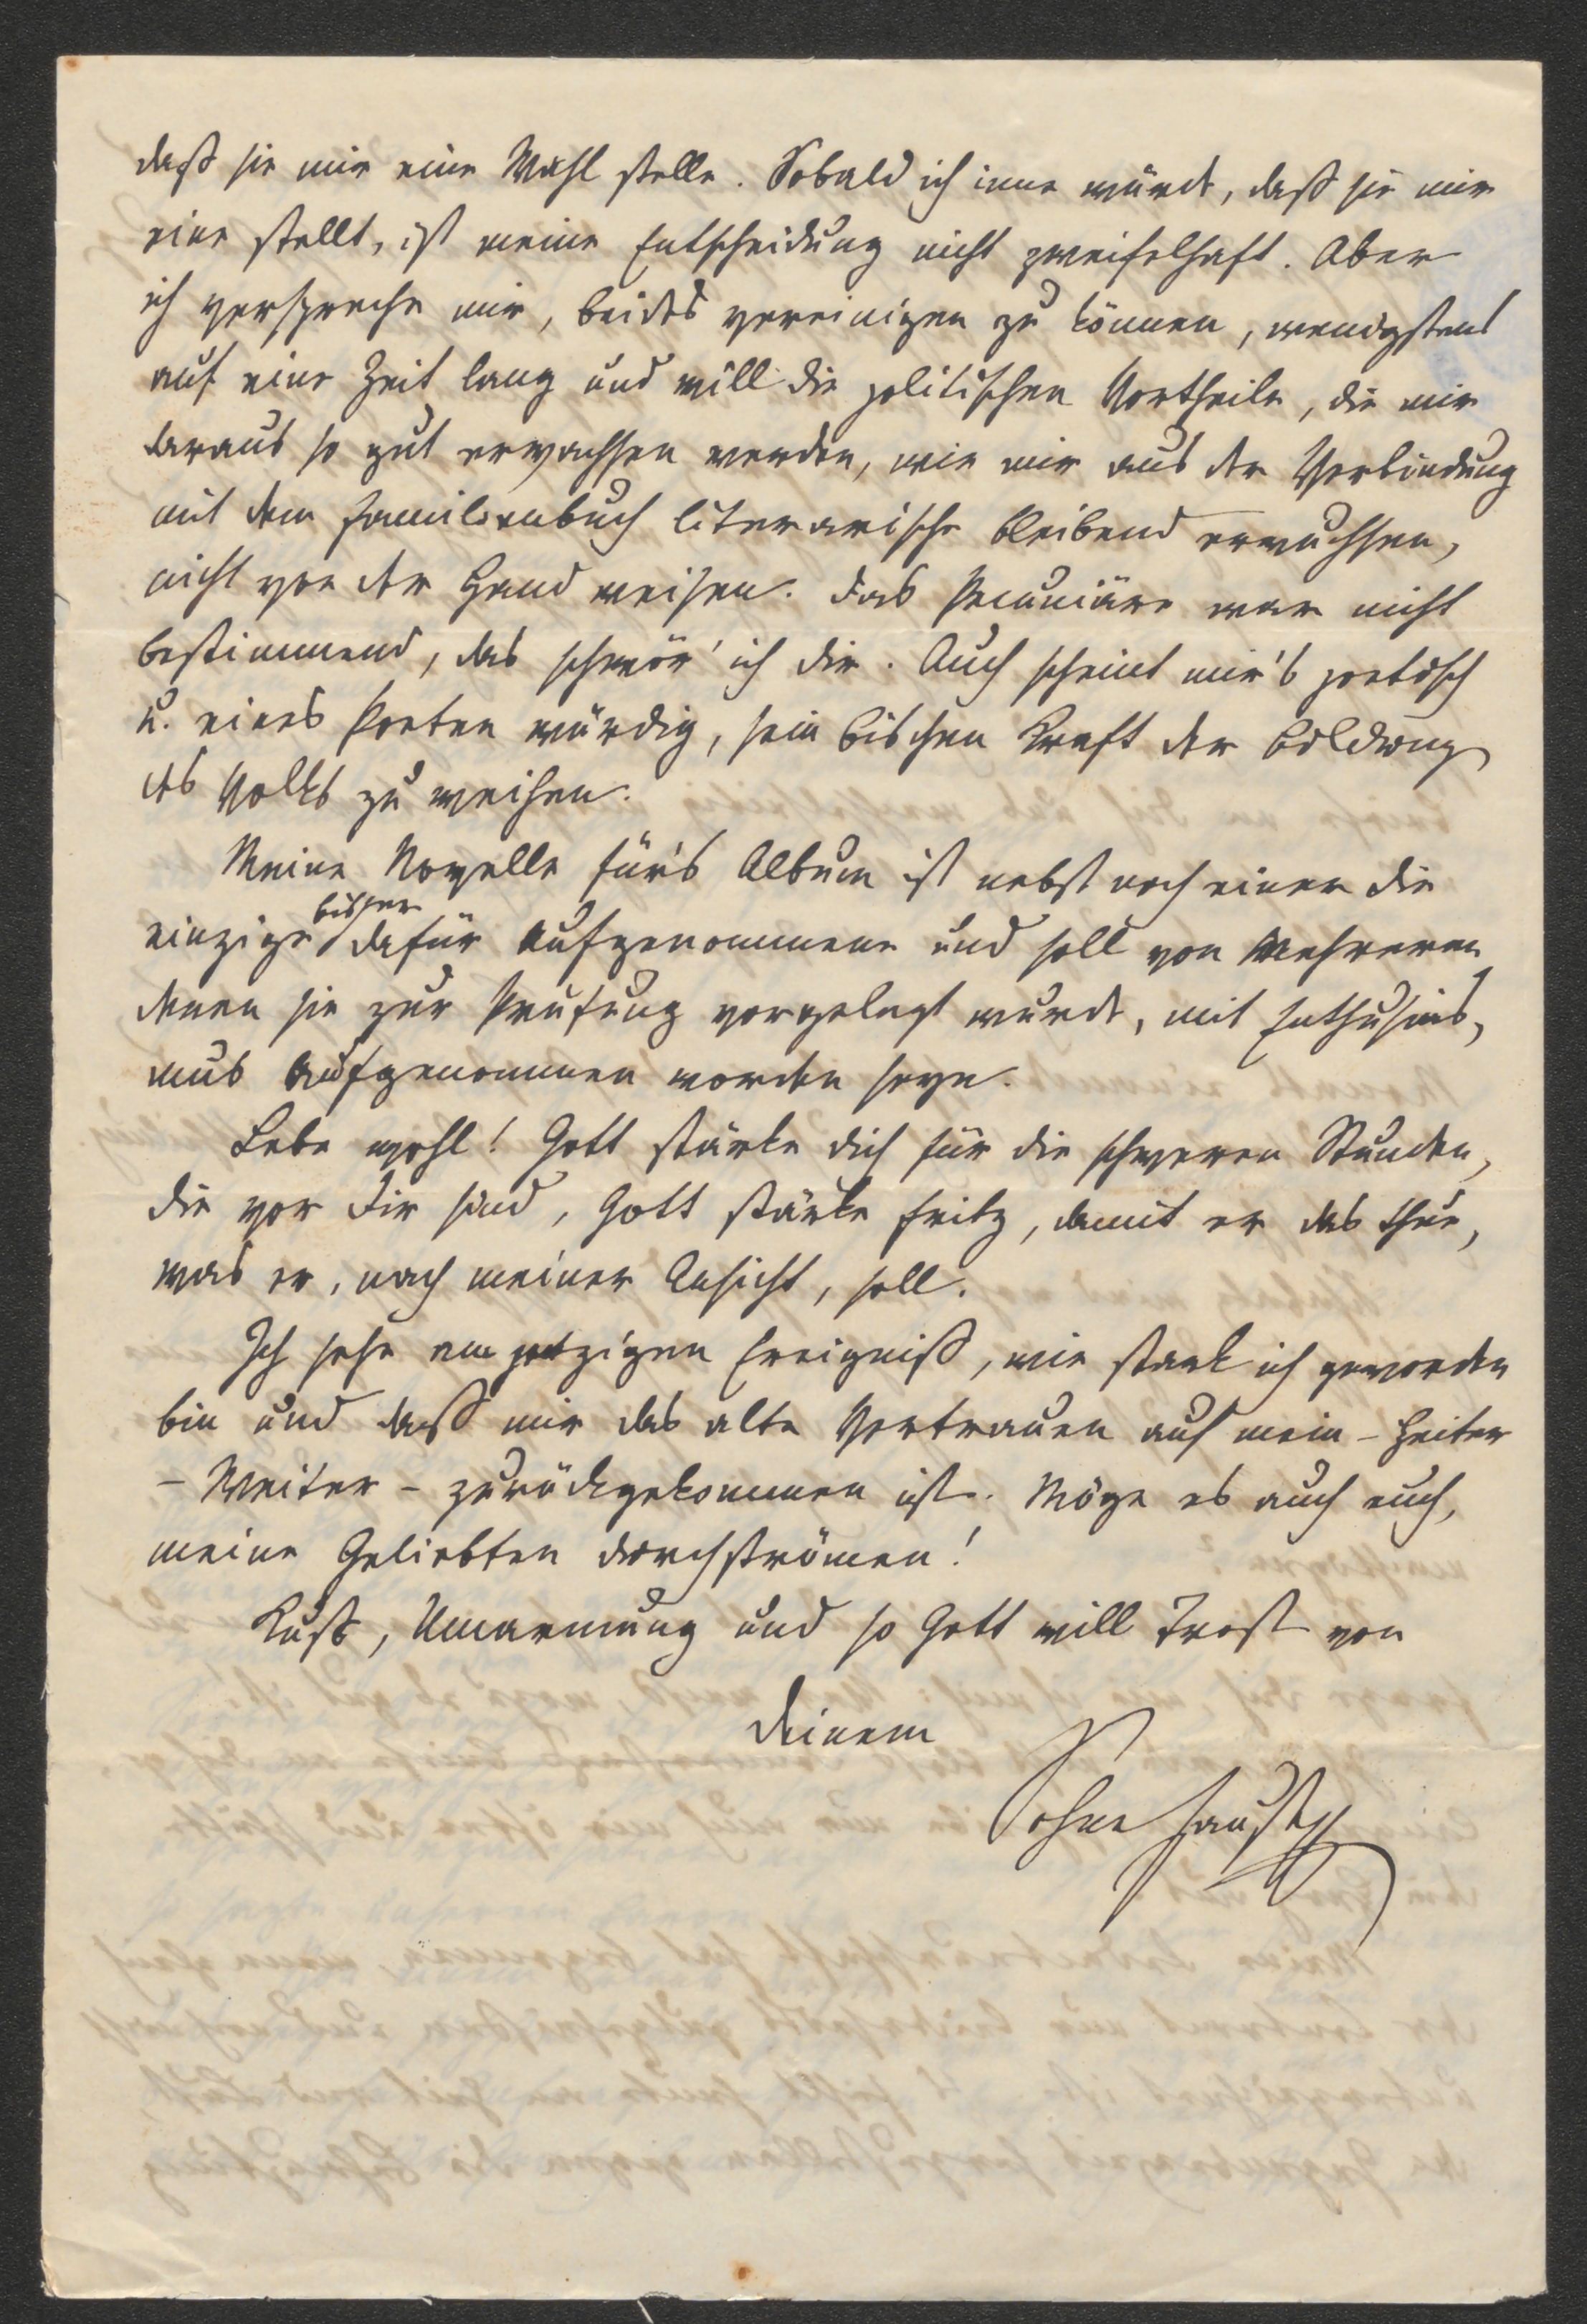 daß sie mir eine Wahl stelle. Sobald ich inne würde, daß sie mir
eine stellt, ist meine Entscheidung nicht zweifelhaft. Aber
ich verspreche mir, beides vereinigen zu können, wenigstens
auf eine Zeit lang und will die politischen Vortheile, die mir
daraus so gut erwachsen werden, wie mir aus der Verbindung
mit dem Familienbuch literarische bleibend erwuchsen,
nicht von der Hand weisen. Das Pecuniäre war nicht
bestimmend, das schwör' ich dir. Auch scheint mir's poetisch
u. eines Poeten würdig, sein bischen Kraft der Bildung
des Volks zu weihen.
Meine Novelle für's Album ist nebst noch einer die
einzige bisher dafür aufgenommene und soll von Mehreren
denen sie zur Prüfung vorgelegt wurde, mit Enthusias-
mus aufgenommen worden seyn.
Lebe wohl! Gott stärke dich für die schweren Stunden,
die vor Dir sind, Gott stärke Fritz, damit er das thue,
was er, nach meiner Ansicht, soll.
Ich sehe am jetzigen Ereigniß, wie stark ich geworden
bin und daß mir das alte Vertrauen auf mein - Heiter
- Weiter - zurückgekommen ist. Möge es auch euch,
meine Geliebten durchströmen!
Kuß, Umarmung und so Gott will Trost von
Deinem
Sohne Faust